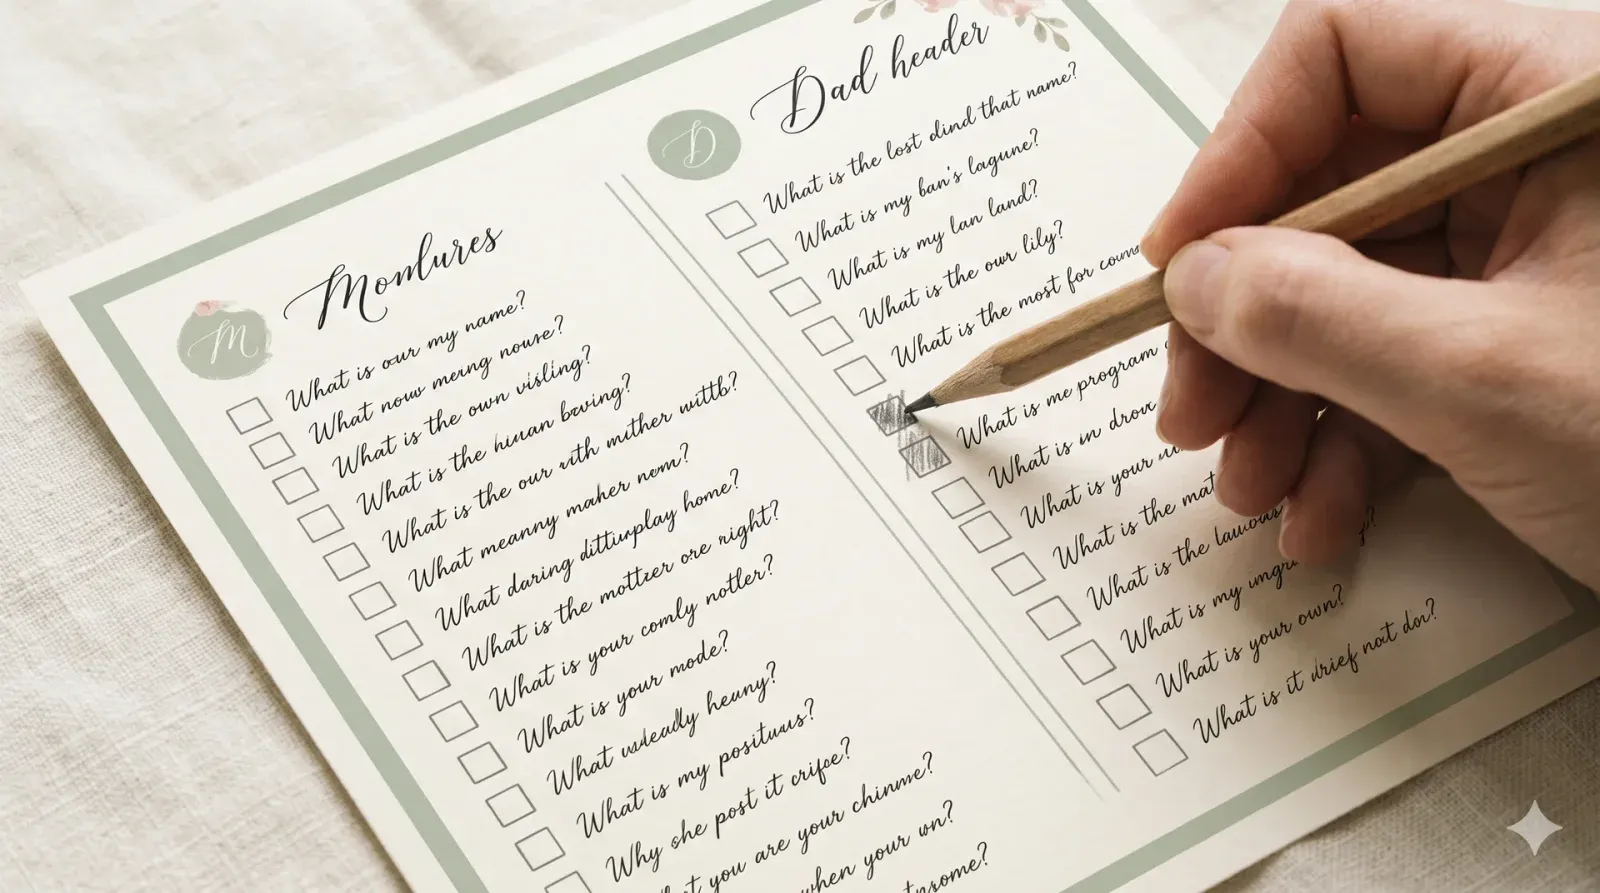 M
Momlures
What is our my name?
What now merng nouse?
What is the own visling?
What is the human baving?
What is the our with mither wittb?
What meanny maher nem?
What daring ditturplay home?
What is the mottzer ore right?
What is your comly notler?
What is your mode?
What heuny?
What is my posituus?
Why she post it crifce?
you are your chinme?
when your wn?
D
Dad header
What is the lost dind that name?
What is my ban's lagune?
What is my lan land?
What is the our lily?
What is the most for
What is me program
What is in drow
What is your
What is the mat
What is the
What is my
What is your own?
What is it nat dor?